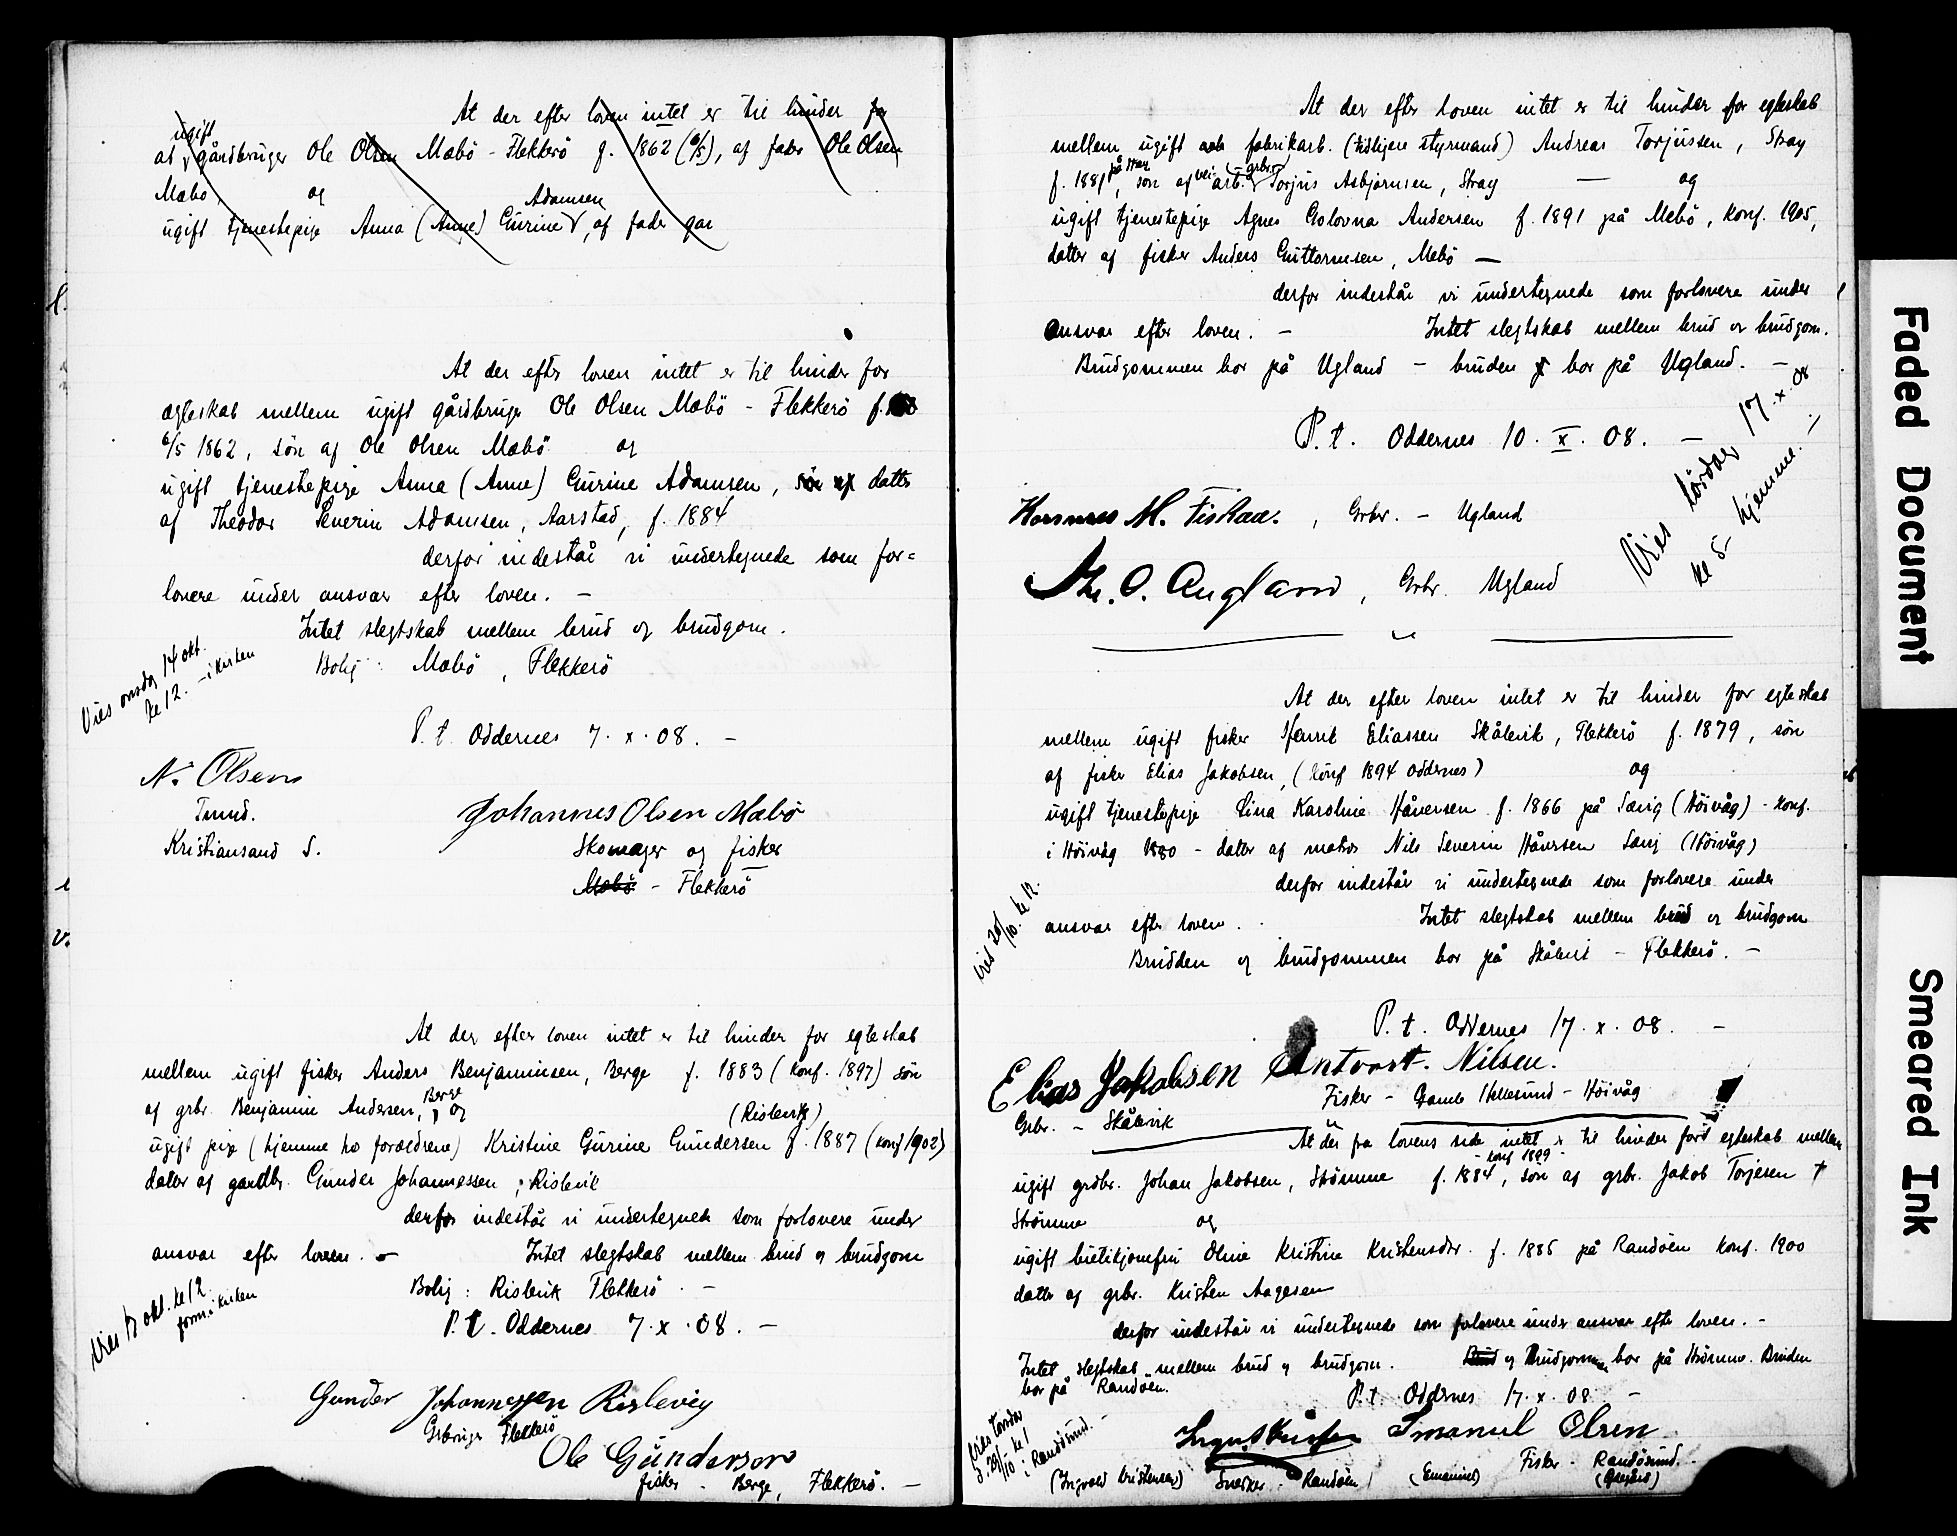 At der efter loven intet er til hinder for
ugift
at gårdbruger Ole Olsen Mæbö - Flekkerö f. 1862 (6/5), af fader Ole Olsen
Mæbö, og
Adamsen
ugift tjenestepige Anna (Anne) Gurine, af fader gar
At der efter loven intet er til hinder for
ægteskab mellem ugift gårdbruger Ole Olsen Mæbö - Flekkerö f.
6/5 1862, sön af Ole Olsen Mæbö og
ugift tjenestepige Anna (Anne) Gurine Adamsen, sön af datter
af Theodor Severin Adamsen, Aarstad, f. 1884
derfor indestår vi undertegnede som for=
lovere under ansvar efter loven. —
Intet slegtskab mellem brud og brudgom.
Bolig: Mæbö, Flekkerö
Vies onsdag 14 okt.
kl 12. - i kirken
P. t. Oddernes 7. x. 08. —
N. Olsen
Tømd.
Kristiansand S.
Johannes Olsen Mæbö
Skomager og fisker
Mæbö - Flekkerö
At der efter loven intet er til hinder for egteskab
mellem ugift fisker Anders Benjaminsen, Berge f. 1883 (konf. 1897) sön
af grbr. Benjamin Andersen, Berge, og
(Risløvik)
ugift pige (hjemme hos forældrene) Kristine Gurine Gundersen f. 1887 (konf 1902)
datter af gaardbr. Gunder Johannessen, Rislevik
derfor indestår vi undertegnede som forlovere under
ansvar efter loven. — Intet slegtskab mellem brud og brudgom
Bolig: Rislevik Flekkerö. —
P. t. Oddernes 7. x. 08. —
okt. kl 12
form. i kirken
Gunder Johannessen Rislevig
Grbruger Flekkerö
Ole Gundersen
fisker - Berge, Flekkerö. —
At der efter loven intet er til hinder for egteskab
mellem ugift fabrikarb. (tidligere styrmand) Andreas Torjussen, Stray
på Stray
grbr.
f. 1881, sön af veiarb. Torjus Asbjørnsen, Stray — og
ugift tjenestepige Agnes Golovna Andersen f. 1891 på Mebö, konf. 1905,
datter af fisker Anders Guttormsen, Mebö —
derfor indestår vi undertegnede som forlovere under
ansvar efter loven. — Intet slegtskab mellem brud og brudgom.
Brudgommen bor på Ugland - bruden bor på Ugland. —
P. t. Oddernes 10. x. 08. —
Vies lördag 17. x. 08
kl 5 hjemme.
M. Fiskaa., Grbr. - Ugland
O. Augland, Grbr. Ugland
At der efter loven intet er til hinder for egteskab
mellem ugift fisker Henrik Eliassen Skålevik, Flekkerö f. 1879, sön
af fisker Elias Jakobsen, (konf 1894 Oddernes) og
ugift tjenestepige Lina Karoline Håversen f. 1866 på Sævig (Höivåg) - konf.
i Höivåg 1880 - datter af matros Nils Severin Håversen Sævig (Höivåg)
derfor indestår vi undertegnede som forlovere under
ansvar efter loven. Intet slegtskab mellem brud og brudgom
Brudden og brudgommen bor på Skålevik - Flekkerö. —
Vies 20/10. kl 12.
P. t. Oddernes 17. x. 08. —
Elias Jakobsen Antvort. Nilsen.
Grbr. - Skålevik
Fisker - Gamle Hellesund - Höivåg
At der fra lovens side intet er til hinder for egteskab mellem
konf 1899
ugift grdbr. Johan Jakobsen, Strömme f. 1884, sön af grbr. Jakob Torjesen †
Strömme og
ugift butikjomfru Oline Kristine Kristensdtr. f. 1885 på Randöen konf. 1900
datter af grbr. Kristen Aagesen
derfor indestår vi undertegnede som forlovere under ansvar efter loven. —
Intet slegtskab mellem brud og brudgom. Brud og Brudgommen bor på Strömme. Bruden
bor på Randöen.
P. t. Oddernes 17. x. 08 —
Vies torsdag
d. 29/10 kl 1
i Randösund. —
Emanuel Olsen
(Ingvald Kristensen) Snekker - Randöen (Emanuel) Fisker - Randösund.
Faded Document
Smeared Ink